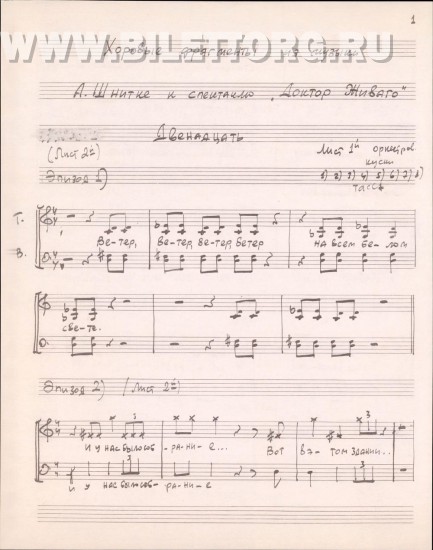 1
WWW.BILETTORG.RU
Хоровые фрагменты из музыки
А. Шнитке к спектаклю „Доктор Живаго"
Двенадцать
(Лист 2й)
Лист 1й оркестров
куски
Эпизод 1)
1) 2) 3) 4) 5) 6) 7) 8)
Т.
Ве-тер, ве-тер, ве-тер, ветер на всем бе-лом
В.
све-те.
Эпизод 2) (Лист 2й)
3 3
и у нас было соб-ра-ни-е... Вот в э-том здании...
3
и у нас было соб-ра-ни-е